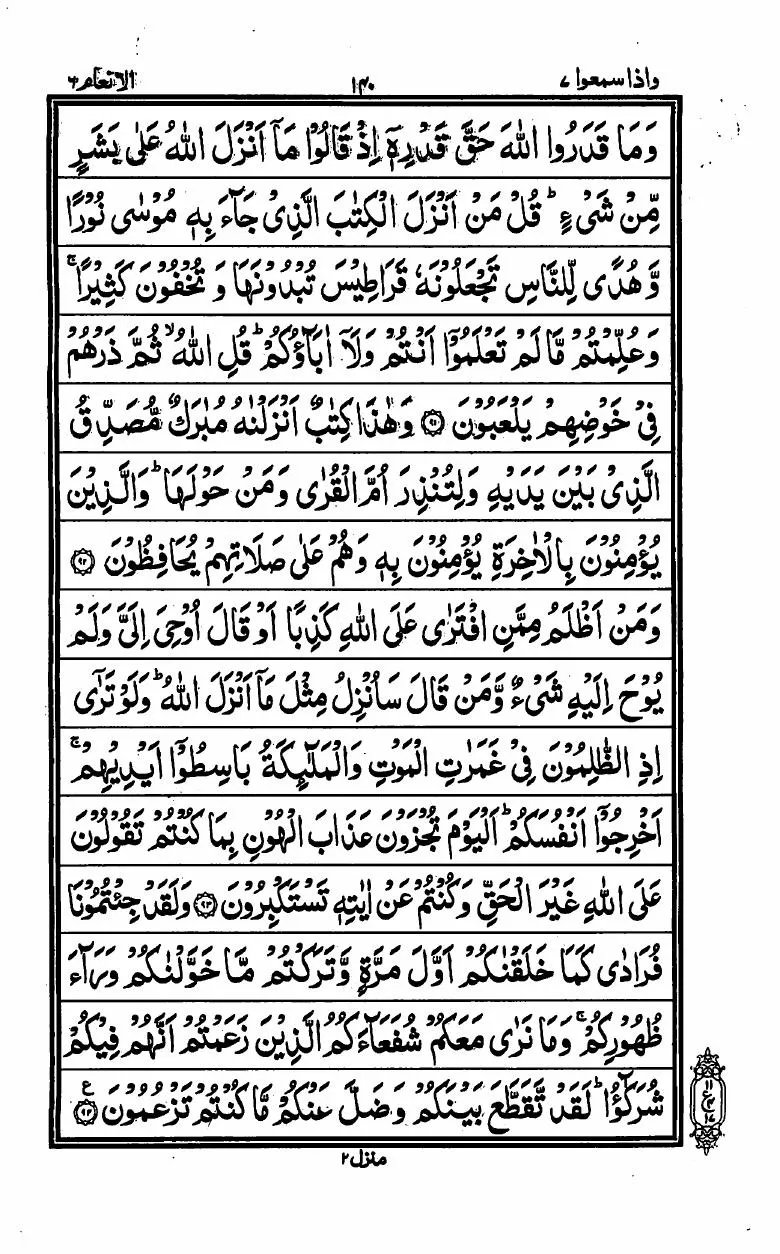 واذا سمعوا ٧
١٤٠
الانعام ٦
وَمَا قَدَرُوا اللّٰهَ حَقَّ قَدْرِهٖٓ اِذْ قَالُوْا مَآ اَنْزَلَ اللّٰهُ عَلٰى بَشَرٍ
مِّنْ شَىْءٍ ؕ قُلْ مَنْ اَنْزَلَ الْكِتٰبَ الَّذِىْ جَآءَ بِهٖ مُوْسٰى نُوْرًا
وَّهُدًى لِّلنَّاسِ تَجْعَلُوْنَهٗ قَرَاطِيْسَ تُبْدُوْنَهَا وَ تُخْفُوْنَ كَثِيْرًا ۚ
وَعُلِّمْتُمْ مَّا لَمْ تَعْلَمُوْۤا اَنْتُمْ وَلَاۤ اٰبَآؤُكُمْ ؕ قُلِ اللّٰهُ ۙ ثُمَّ ذَرْهُمْ
فِىْ خَوْضِهِمْ يَلْعَبُوْنَ ﴿٩١﴾ وَهٰذَا كِتٰبٌ اَنْزَلْنٰهُ مُبٰرَكٌ مُّصَدِّقُ
الَّذِىْ بَيْنَ يَدَيْهِ وَلِتُنْذِرَ اُمَّ الْقُرٰى وَمَنْ حَوْلَهَا ؕ وَالَّذِيْنَ
يُؤْمِنُوْنَ بِالْاٰخِرَةِ يُؤْمِنُوْنَ بِهٖ وَهُمْ عَلٰى صَلَاتِهِمْ يُحَافِظُوْنَ ﴿٩٢﴾
وَمَنْ اَظْلَمُ مِمَّنِ افْتَرٰى عَلَى اللّٰهِ كَذِبًا اَوْ قَالَ اُوْحِىَ اِلَىَّ وَلَمْ
يُوْحَ اِلَيْهِ شَىْءٌ وَّمَنْ قَالَ سَاُنْزِلُ مِثْلَ مَاۤ اَنْزَلَ اللّٰهُ ؕ وَلَوْ تَرٰٓى
اِذِ الظّٰلِمُوْنَ فِىْ غَمَرٰتِ الْمَوْتِ وَالْمَلٰٓئِكَةُ بَاسِطُوْۤا اَيْدِيْهِمْ ۚ
اَخْرِجُوْۤا اَنْفُسَكُمْ ؕ اَلْيَوْمَ تُجْزَوْنَ عَذَابَ الْهُوْنِ بِمَا كُنْتُمْ تَقُوْلُوْنَ
عَلَى اللّٰهِ غَيْرَ الْحَقِّ وَكُنْتُمْ عَنْ اٰيٰتِهٖ تَسْتَكْبِرُوْنَ ﴿٩٣﴾ وَلَقَدْ جِئْتُمُوْنَا
فُرَادٰى كَمَا خَلَقْنٰكُمْ اَوَّلَ مَرَّةٍ وَّتَرَكْتُمْ مَّا خَوَّلْنٰكُمْ وَرَآءَ
ظُهُوْرِكُمْ ۚ وَمَا نَرٰى مَعَكُمْ شُفَعَآءَكُمُ الَّذِيْنَ زَعَمْتُمْ اَنَّهُمْ فِيْكُمْ
شُرَكٰٓؤُا ؕ لَقَدْ تَّقَطَّعَ بَيْنَكُمْ وَضَلَّ عَنْكُمْ مَّا كُنْتُمْ تَزْعُمُوْنَ ﴿٩٤﴾ ع
١١
ع
١٧
منزل ٢